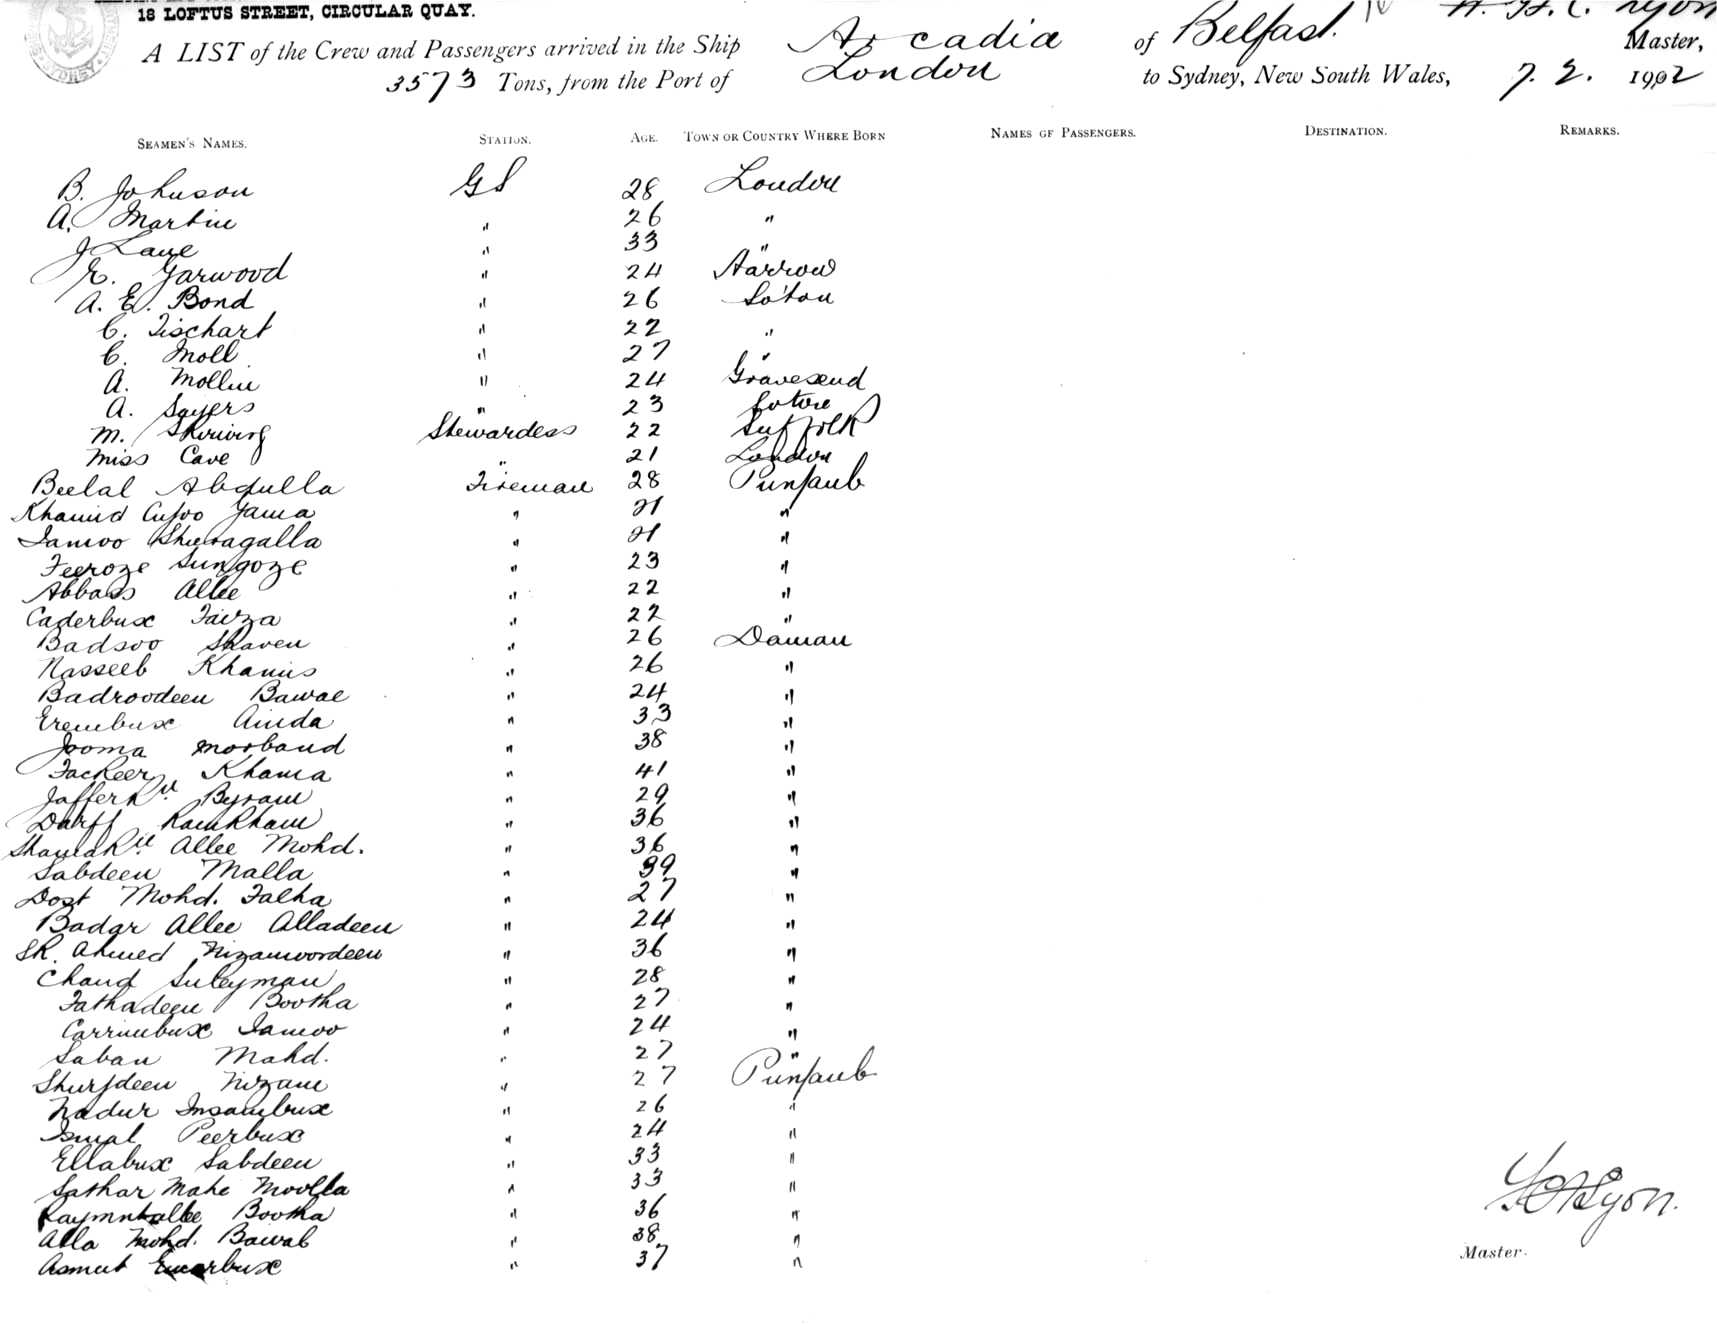 18 LOFTUS STREET, CIRCULAR QUAY.
A LIST of the Crew and Passengers arrived in the Ship Arcadia of Belfast. Lyon Master,
3573 Tons, from the Port of London to Sydney, New South Wales, 7. 2. 1902
SEAMEN'S NAMES. STATION. AGE. TOWN OR COUNTRY WHERE BORN NAMES OF PASSENGERS. DESTINATION. REMARKS.
B. Johnson GS 28 London
A. Martin " 26 "
J Lane " 33 "
E. Garwood " 24 Harrow
A. E. Bond " 26 So'ton
C. Tischart " 22 "
C. Moll " 27 "
A. Mollin " 24 Gravesend
A. Sayers " 23
M. Stewardess 22 Suffolk
Miss Cave " 21 London
Beelal Abdulla Fireman 28 Punjaub
Khamid Cujoo Jama " 21 "
Jamoo " 21 "
Feeroze Sungoze " 23 "
Abbass Allee " 22 "
Caderbux Fairza " 22 "
Badsoo Shaven " 26 Daman
Nasseeb Khamis " 26 "
Badroodeen Bawae " 24 "
Erembux Ainda " 33 "
Jooma Morband " 38 "
Fackeer Khama " 41 "
Jaffer Byram " 29 "
Darff Ramkham " 36 "
Allee Mohd. " 36 "
Sabdeen Malla " 39 "
Dost Mohd. Talha " 27 "
Badar Allee Alladeen " 24 "
Sk. Ahmed Nizamoordeen " 36 "
Chand Suleyman " 28 "
Fathadeen Bootha " 27 "
Carrimbux Jamoo " 24 "
Saban Mahd. " 27 "
Shurfdeen Nizam " 27 Punjaub
Nadur Insambux " 26 "
Ismal Peerbux " 24 "
Ellabux Sabdeen " 33 "
Sathar Mahe Moolla " 33 "
Bootha " 36 "
Alla Mohd. Bawab " 38 "
Asmut " 37 "
Lyon.
Master.